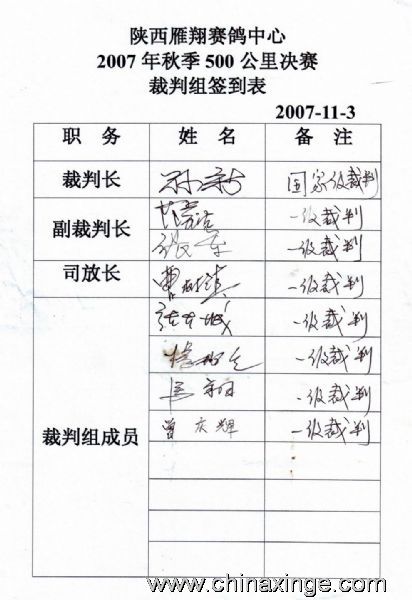 陕西雁翔赛鸽中心
2007年秋季500公里决赛
裁判组签到表
2007-11-3
职 务 姓 名 备 注
裁判长 孙新 国家级裁判
副裁判长 一级裁判
张军 一级裁判
司放长 一级裁判
裁判组成员 一级裁判
一级裁判
一级裁判
曾庆辉 一级裁判
www.chinaxinge.com